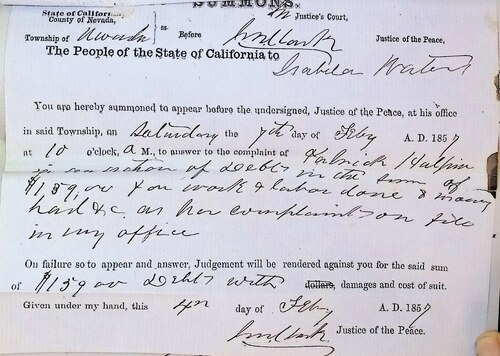 SUMMONS.
State of California, County of Nevada, ss. In Justice's Court,
Township of Nevada Before Justice of the Peace.
The People of the State of California to
Isabela Waters
You are hereby summoned to appear before the undersigned, Justice of the Peace, at his office
in said Township, on Saturday the 7th day of Feby A. D. 1857
at 10 o'clock, A M., to answer to the complaint of Patrick Halpin
in an action of Debts in the sum of
$159,00 for work & labor done & money
had &c. as per complaint on file
in my office
On failure so to appear and answer, Judgement will be rendered against you for the said sum
of $159 00 Debts with dollars, damages and cost of suit.
Given under my hand, this 4th day of Feby A. D. 1857
Justice of the Peace.